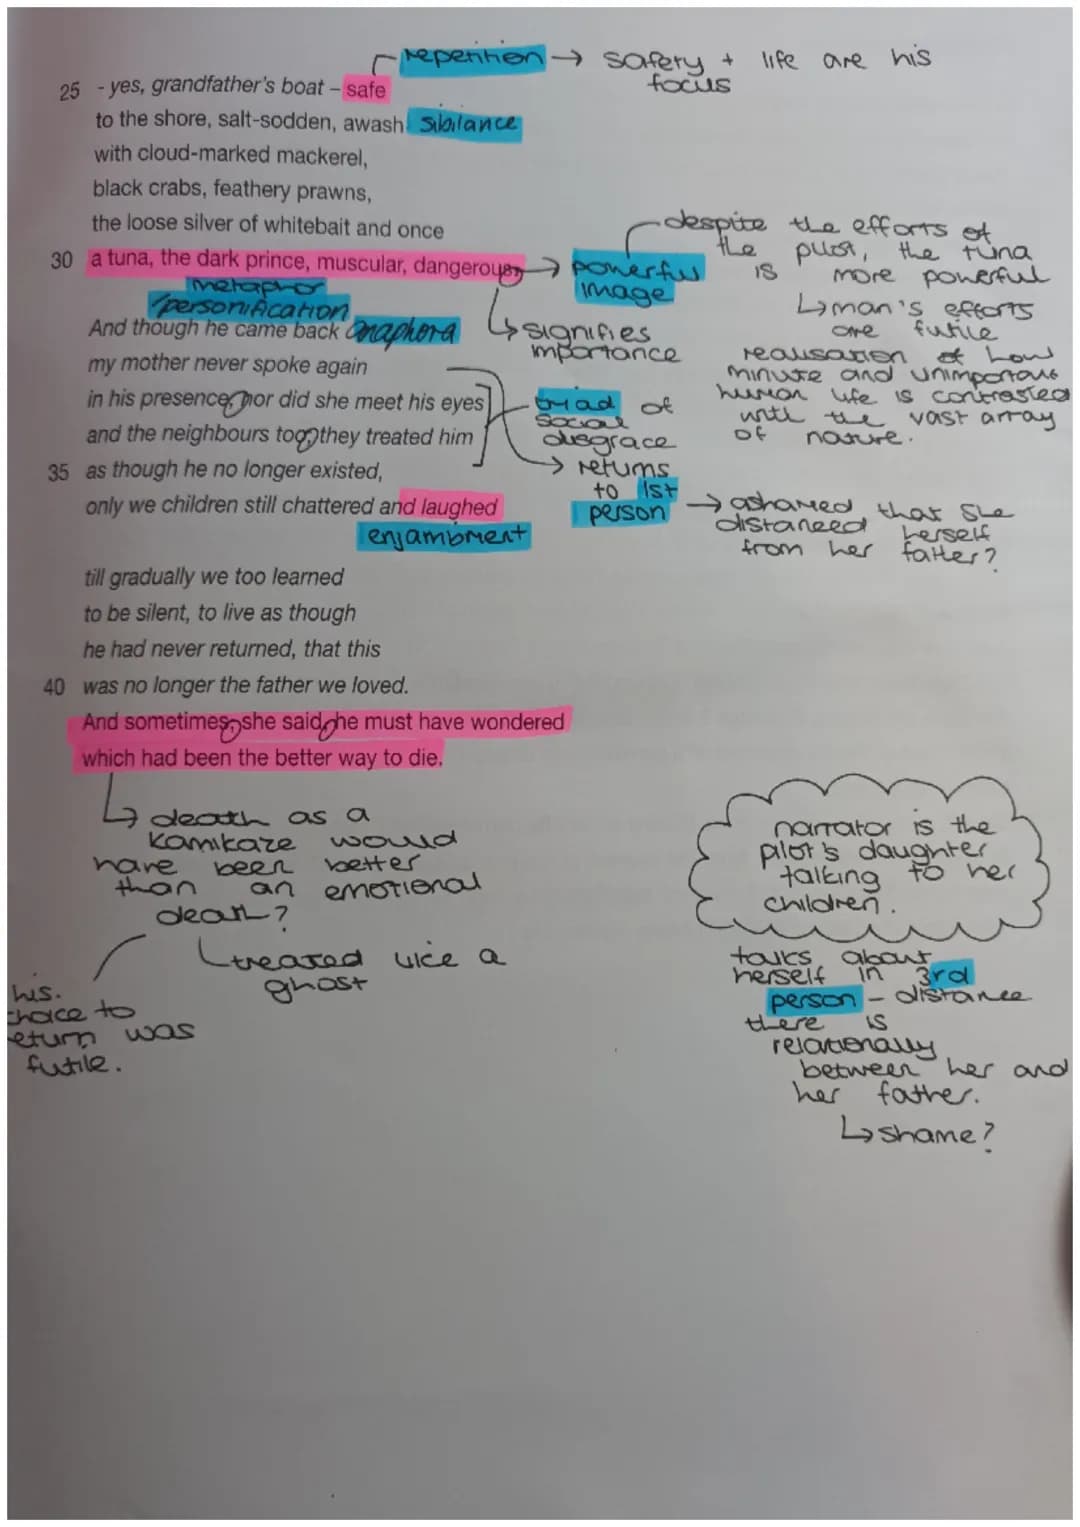 repetition → safety + life are his
focus
25 - yes, grandfather's boat – safe
to the shore, salt-sodden, awash sibilance
with cloud-marked mackerel,
black crabs, feathery prawns,
the loose silver of whitebait and once
30 a tuna, the dark prince, muscular, dangerous.
metaphor
/personification
powerful
image
despite the efforts of
the pilot, the tuna
is more powerful
↳ man's efforts
are futile
realisation of how
minute and unimportant
human life is contrasted
with the vast array
of nature.
↳ signifies
importance
And though he came back anaphora
my mother never spoke again
in his presence, nor did she meet his eyes
and the neighbours too, they treated him
triad of
social
disgrace
→ returns
to 1st
person
→ ashamed that she
distanced herself
from her father?
35 as though he no longer existed,
only we children still chattered and laughed
enjambment
till gradually we too learned
to be silent, to live as though
he had never returned, that this
40 was no longer the father we loved.
And sometimes, she said, he must have wondered
which had been the better way to die.
↳ death as a
kamikaze would
have been better
than an emotional
death?
treated like a
ghost
his
choice to
return was
futile.
narrator is the
pilot's daughter
talking to her
children.
talks about
herself in 3rd
person – distance
there is
relationally
between her and
her father.
↳ shame?